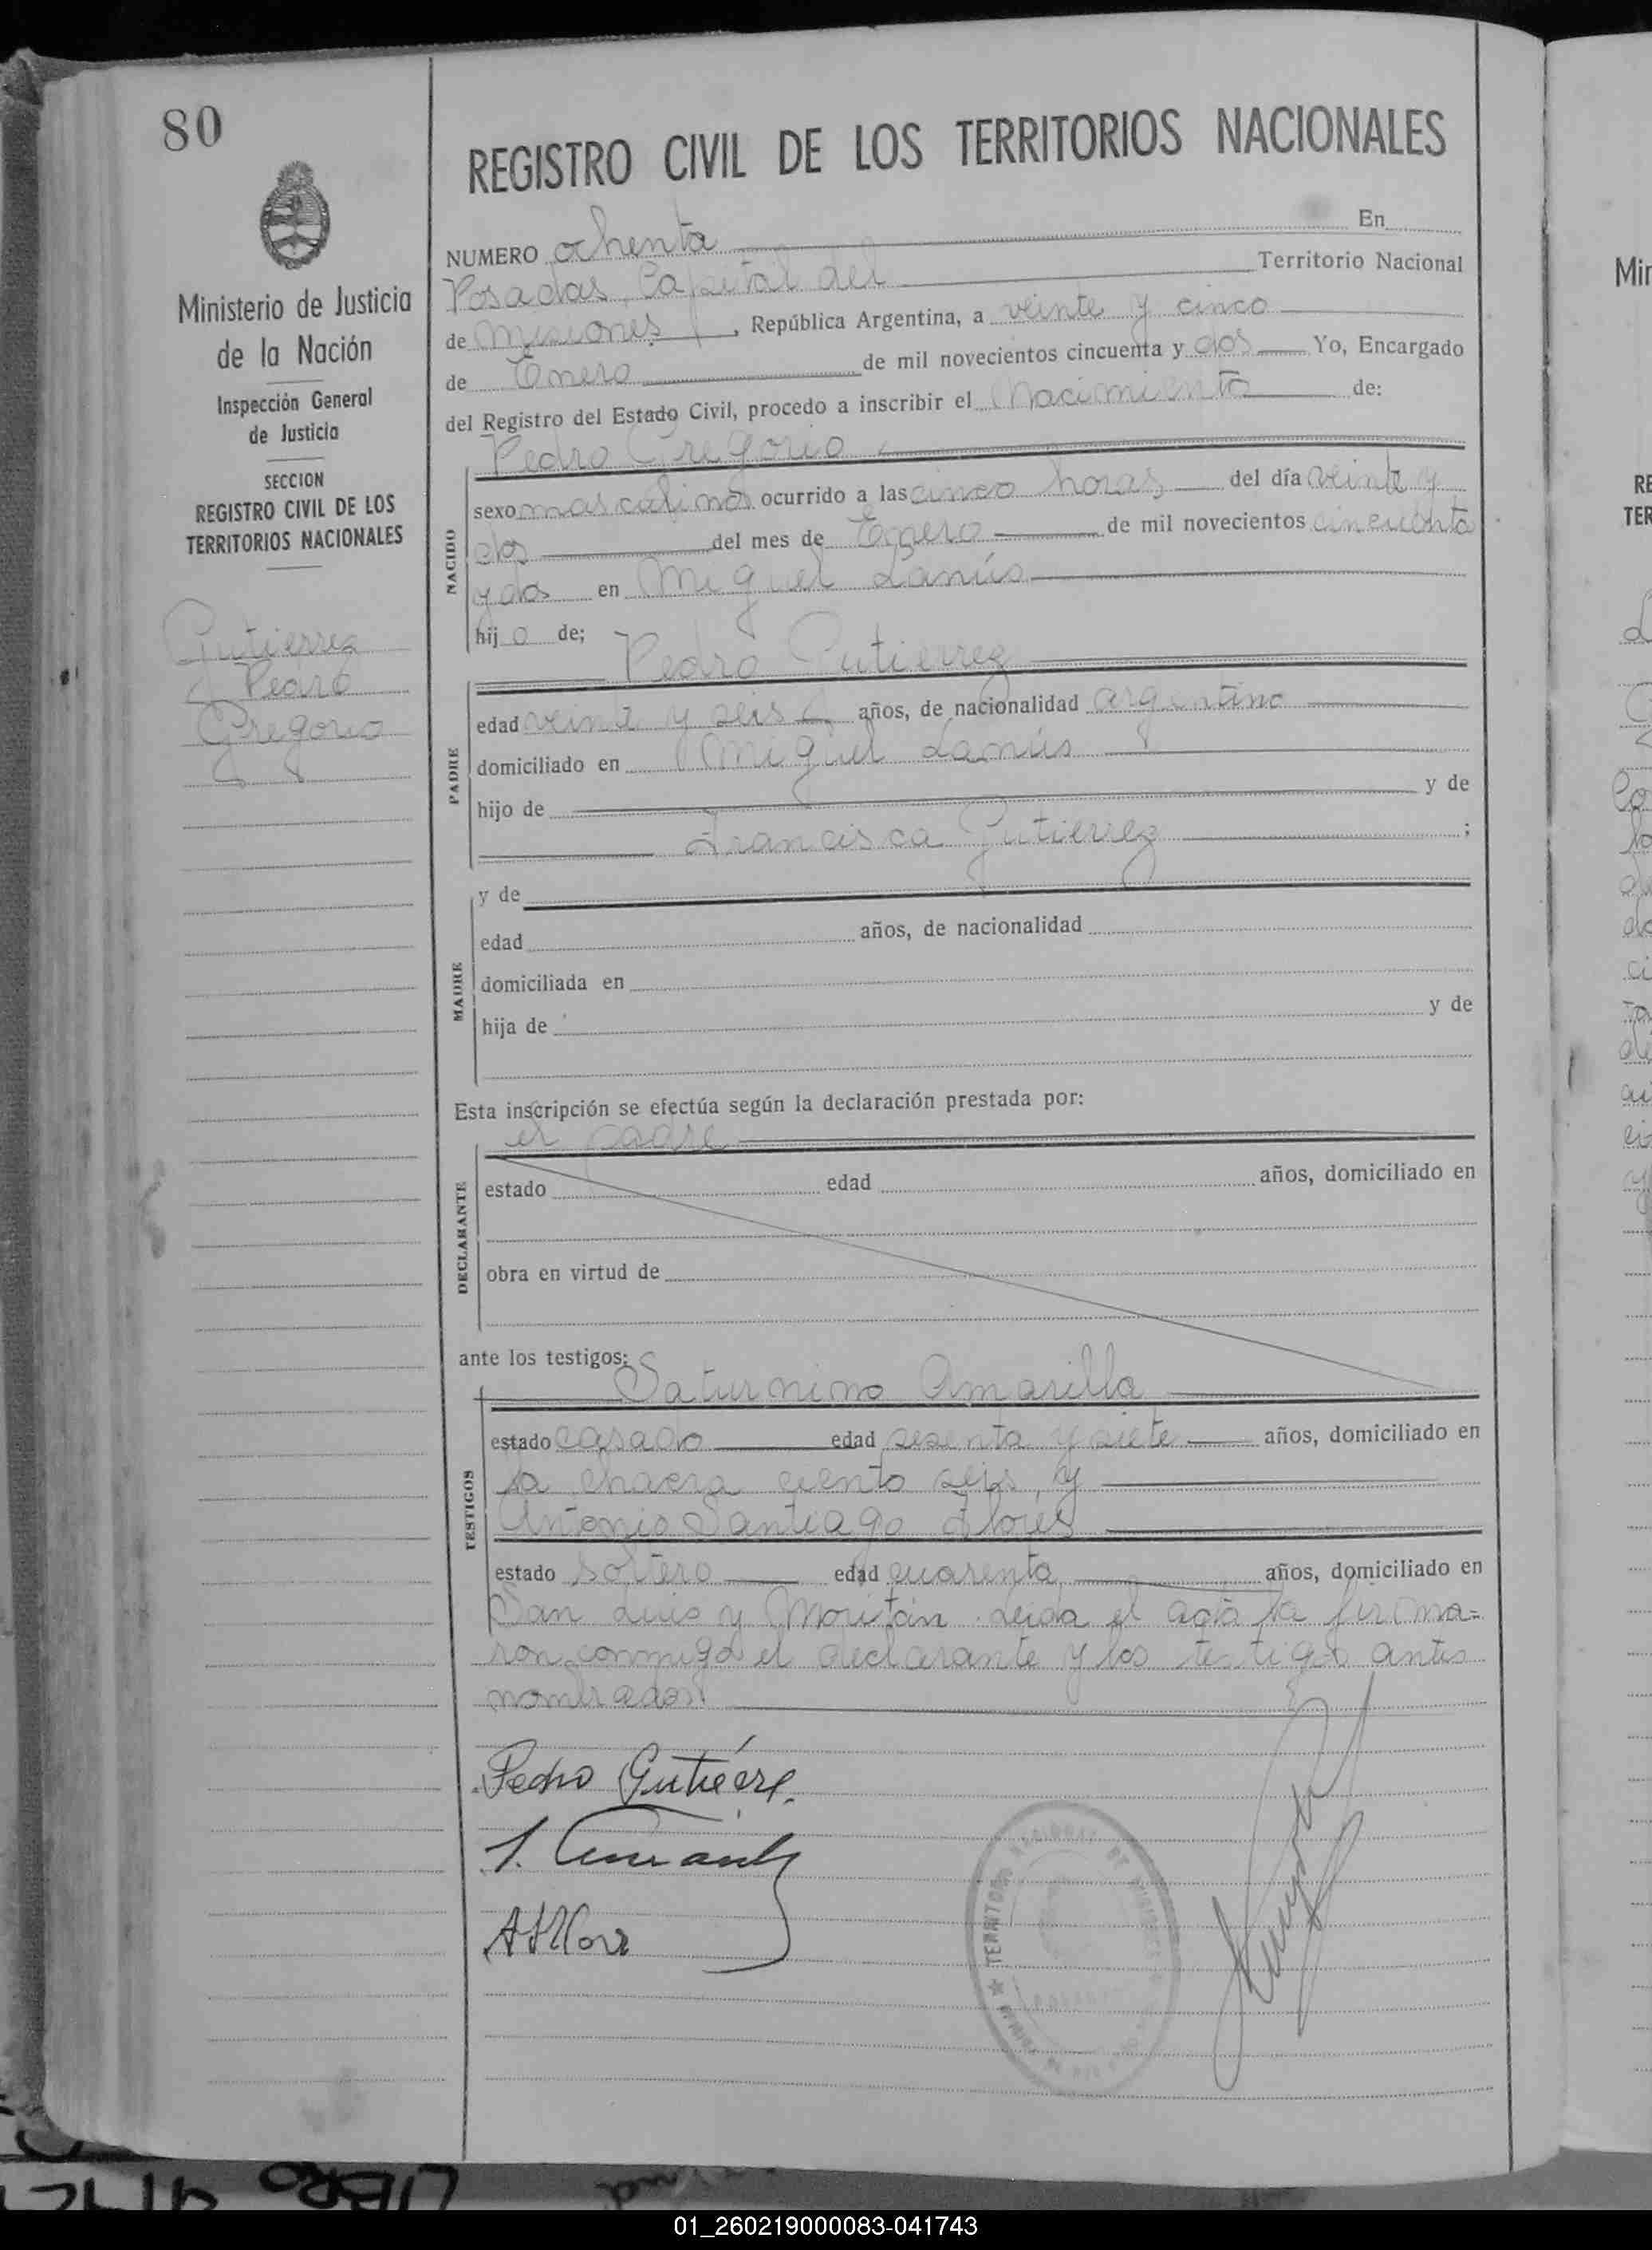 80
Ministerio de Justicia
de la Nación
Inspección General
de Justicia
SECCION
REGISTRO CIVIL DE LOS
TERRITORIOS NACIONALES
Gutierrez
Pedro
Gregorio
REGISTRO CIVIL DE LOS TERRITORIOS NACIONALES
NUMERO ochenta En
Posadas, Capital del Territorio Nacional
de Misiones, República Argentina, a veinte y cinco
de Enero de mil novecientos cincuenta y dos Yo, Encargado
del Registro del Estado Civil, procedo a inscribir el Nacimiento de:
Pedro Gregorio
NACIDO
sexo masculino ocurrido a las cinco horas, del día veinte y
dos del mes de Enero de mil novecientos cincuenta
y dos en Miguel Lanús
hijo de;
Pedro Gutierrez
PADRE
edad veinte y seis años, de nacionalidad argentino
domiciliado en Miguel Lanús
hijo de y de
Francisca Gutierrez ;
MADRE
y de
edad años, de nacionalidad
domiciliada en
hija de y de
Esta inscripción se efectúa según la declaración prestada por:
el padre
DECLARANTE
estado edad años, domiciliado en
obra en virtud de
ante los testigos:
Saturnino Amarilla
TESTIGOS
estado casado edad sesenta y siete años, domiciliado en
la chacra ciento seis, y
Antonio Santiago Flores
estado soltero edad cuarenta años, domiciliado en
San Luis y Moritán. Leida el acta la firma=
ron conmigo el declarante y los testigos antes
nombrados.
Pedro Gutiérrez
TERRITORIO NACIONAL DE MISIONES
01_260219000083-041743